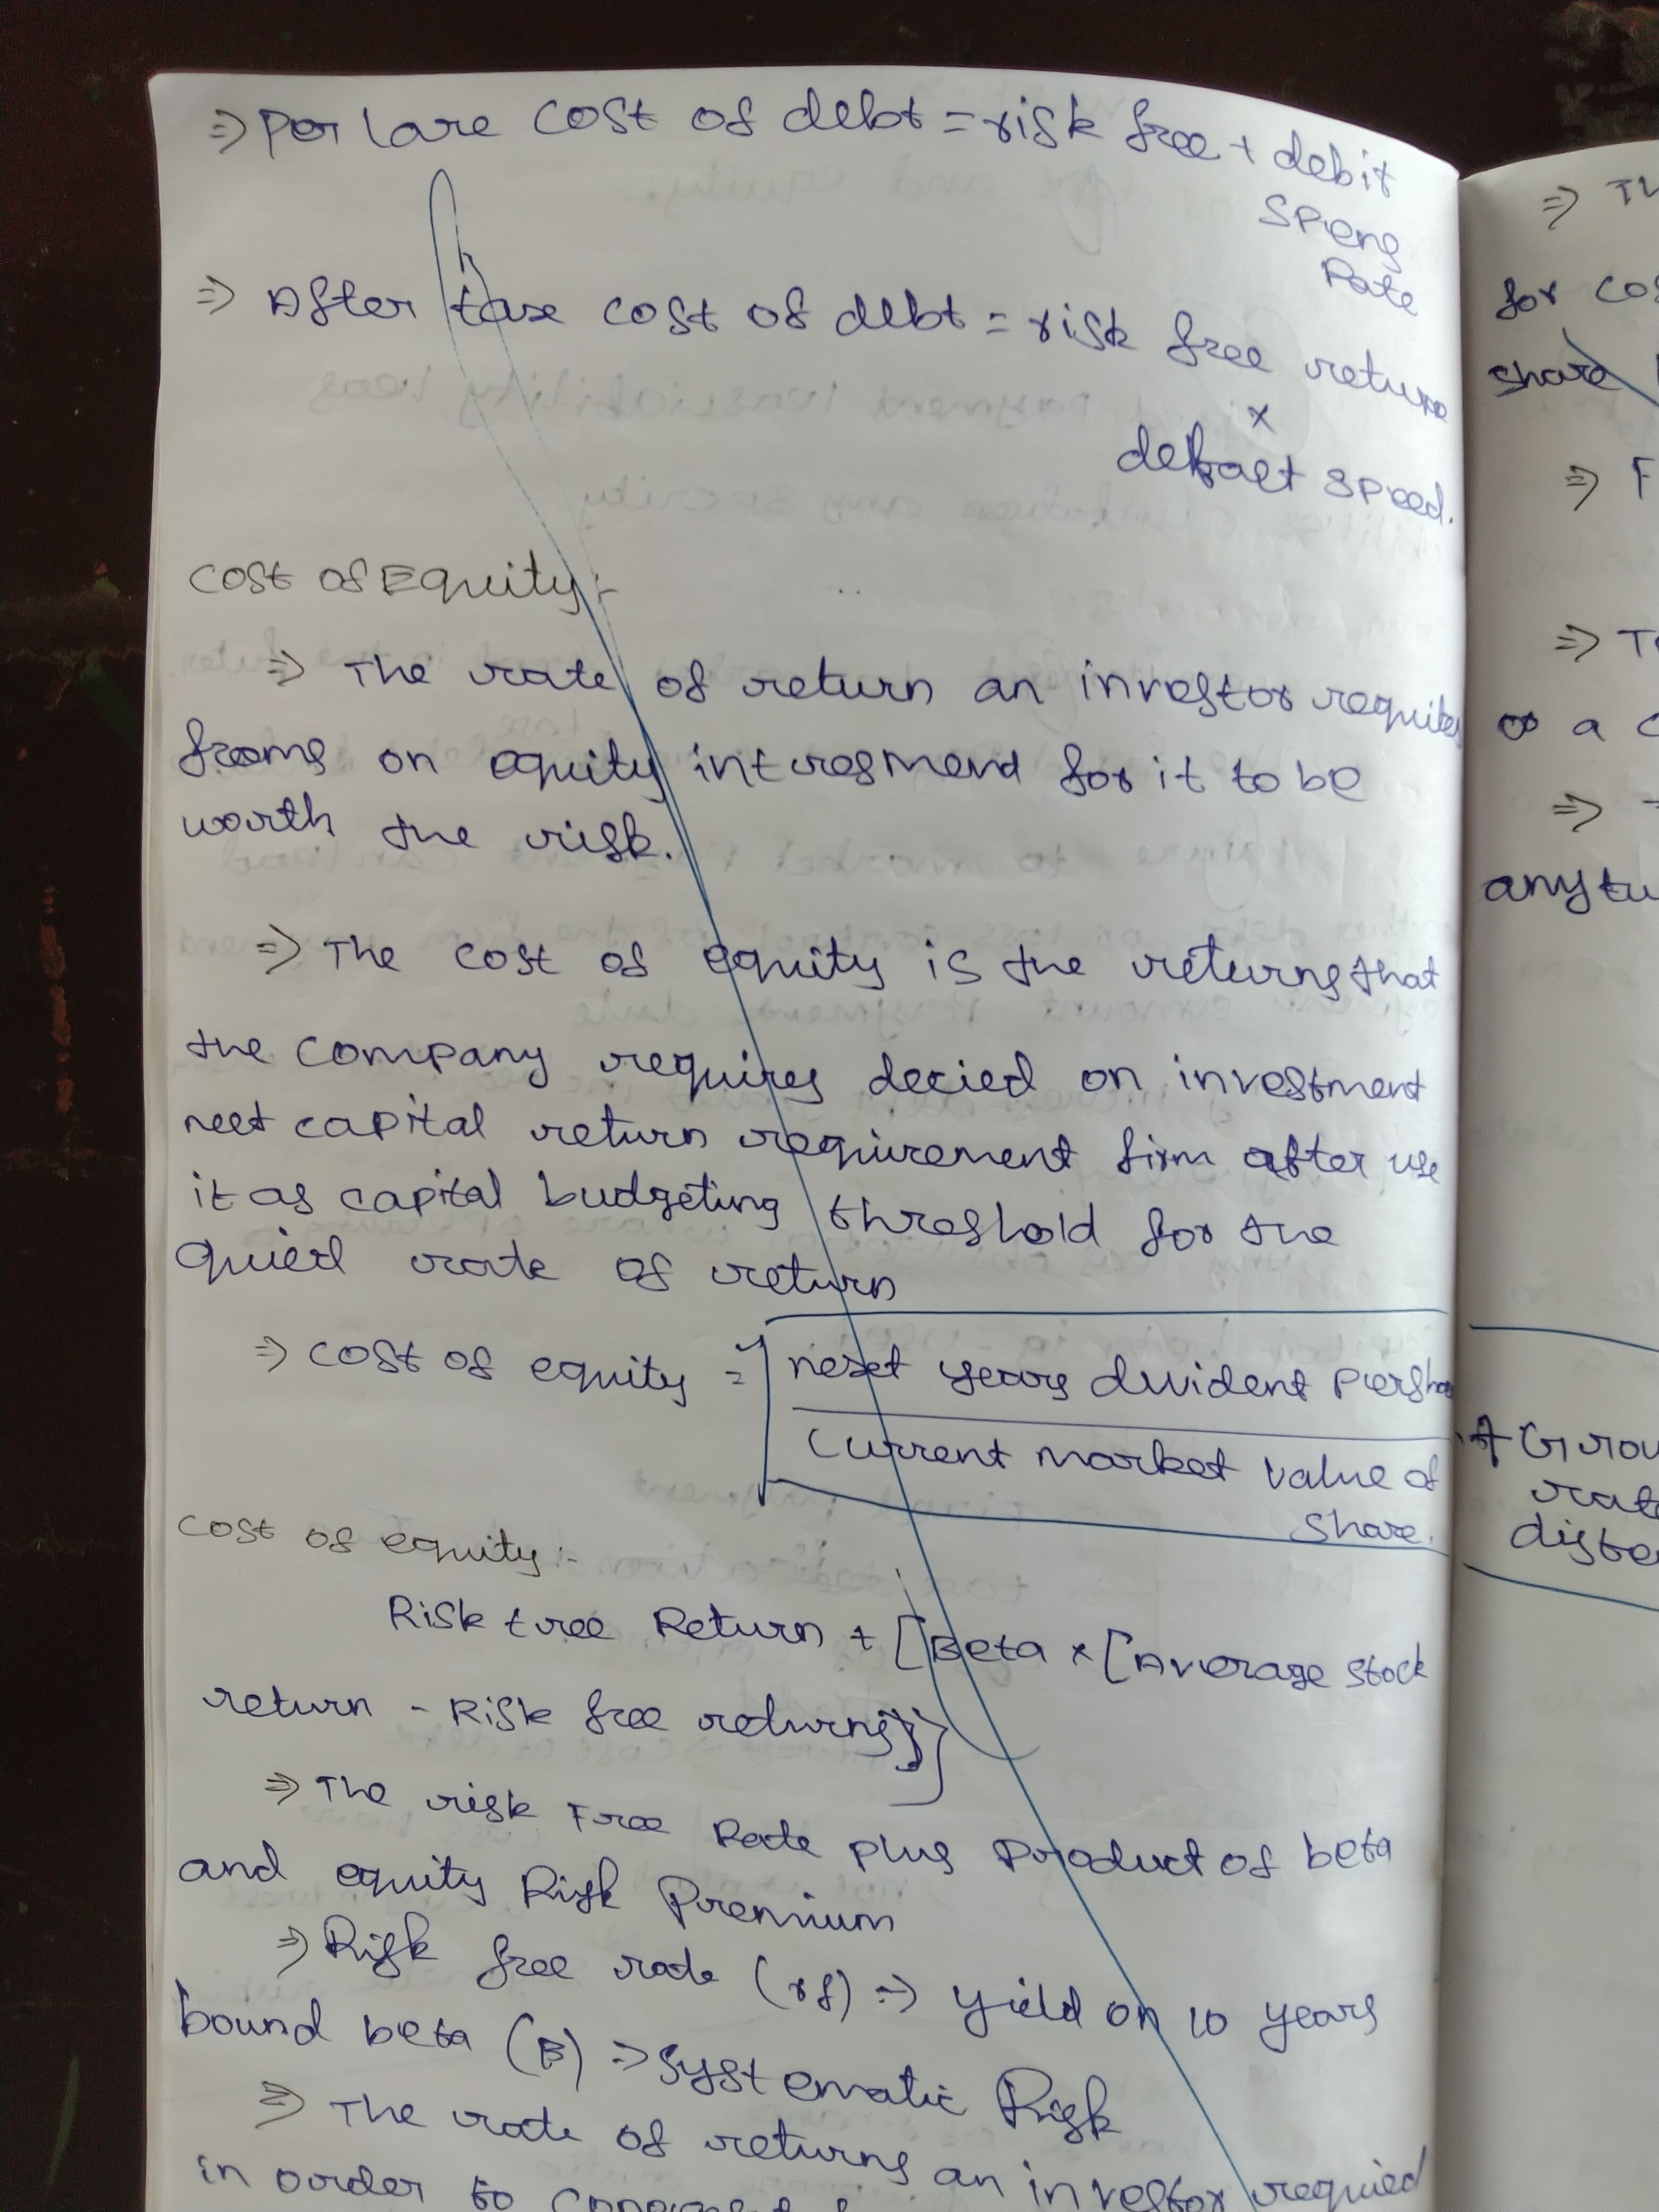 => Per lare cost of debt = risk free + debit
Speng
Rate
=> After taxe cost of debt = risk free return
x
defaelt speed.
Cost of Equity :-
=> The rate of return an investor requires
froms on equity interesmend for it to be
worth the risk.
=> The cost of equity is the returns that
the company requires decied on investment
neet capital return requirement firm after use
it as capital budgeting threshold for the
quied rate of return
=> cost of equity = next years divident persha
Current market value of
share.
cost of equity :-
Risk free Return + [Beta x [Average stock
return - Risk free returns]]
=> The risk Free Rate plus product of beta
and equity Risk Premium
=> Risk free rate (rf) => yield on 10 years
bound beta (B) => Systematic Risk
=> The rate of returns an investor required
in order to
=> Th
for cos
share
=> F
=> T
a c
=>
any tu
+ Grow
rate